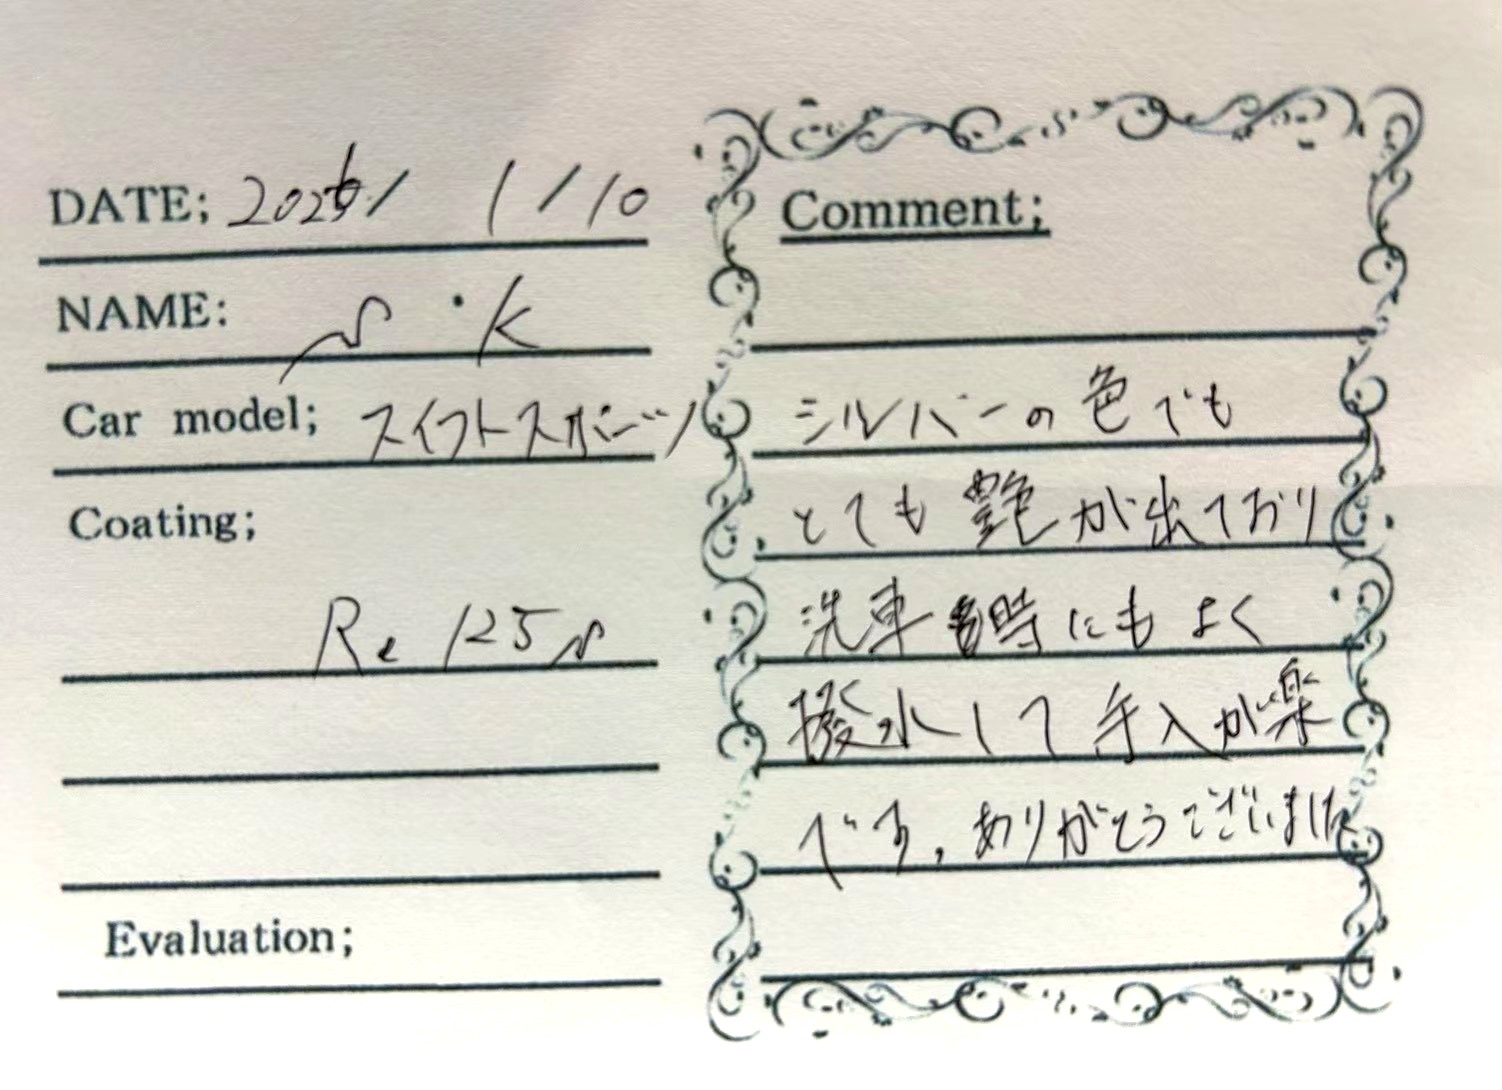 DATE; 2026/ 1/10
NAME: S・K
Car model; スイフトスポーツ
Coating;
Re 125s
Evaluation;
Comment;
シルバーの色でも
とても艶が出ており
洗車時にもよく
撥水して手入が楽
です。ありがとうございました